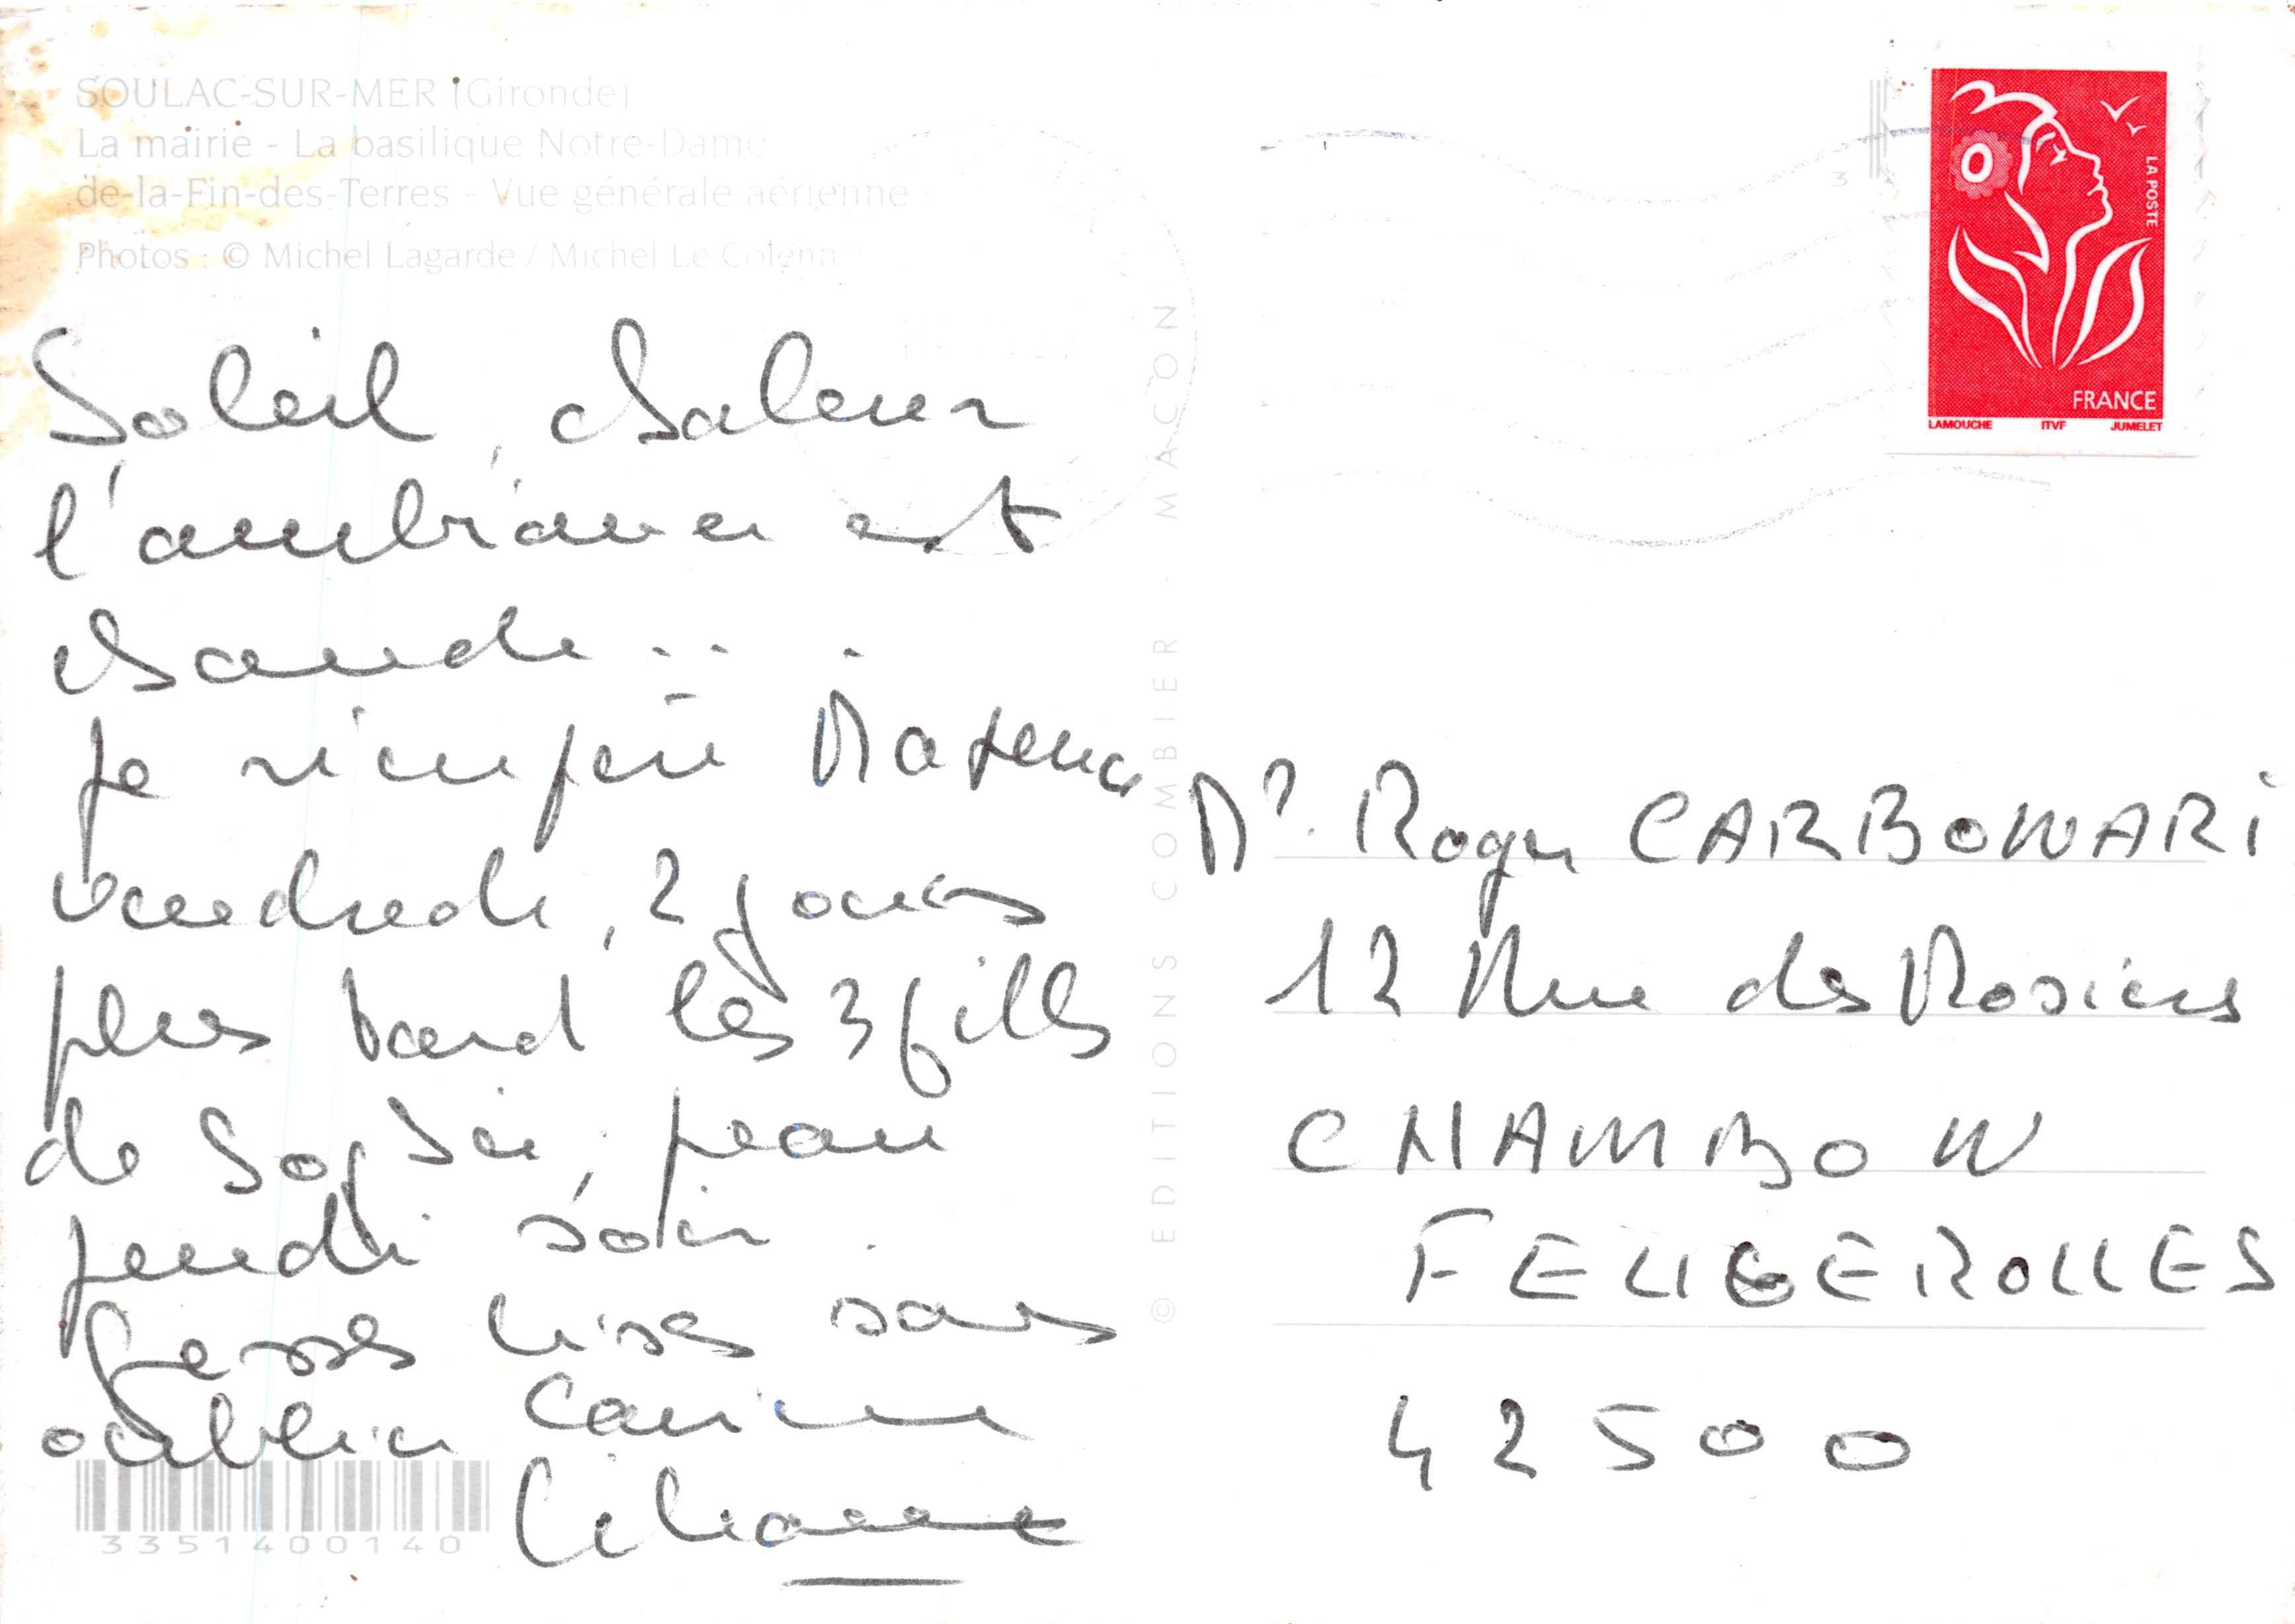 SOULAC-SUR-MER (Gironde)
La mairie - La basilique Notre-Dame
de-la-Fin-des-Terres - Vue générale aérienne
Photos : © Michel Lagarde / Michel Le Colenn
Soleil, chaleur
l'ambiance est
chaude . . .
Je récupère
vendredi, 2 jours
plus tard les 3 filles
de Sophie, Jean
jeudi soir.
Grosses bises sans
oublier Carine
Liliane
3351400140
© EDITIONS COMBIER - MÂCON
3
LA POSTE
FRANCE
LAMOUCHE ITVF JUMELET
Mr. Roger CARBONARI
12 Rue des Rosiers
CHAMBON
FEUGEROLLES
42500